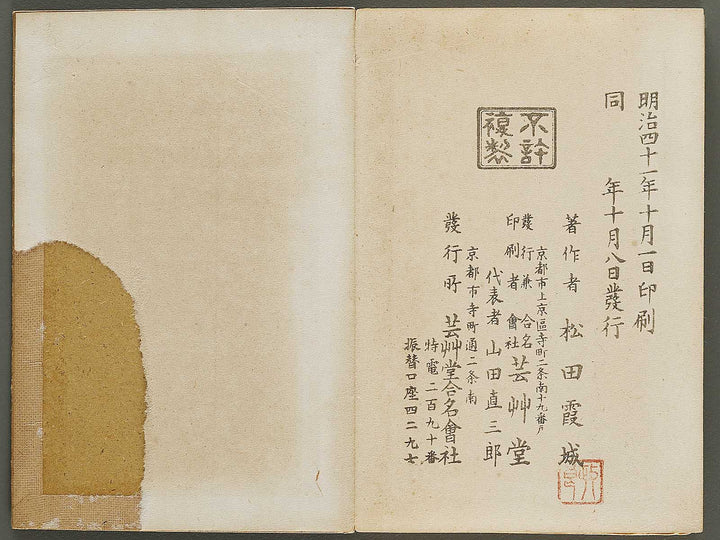 明治四十一年十月一日印刷
同　年十月八日發行
不許複製
著作者　松田霞城
京都市上京區寺町二条南十九番戸
發行兼印刷者　合名會社　芸艸堂
代表者　山田直三郎
京都市寺町通二条南
發行所　芸艸堂合名會社
特電二百九十番
振替口座四二九七